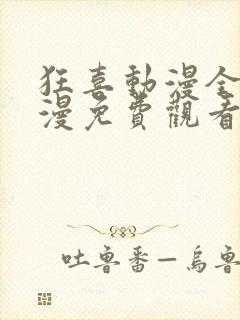 狂喜動漫全
漫免費觀看
吐魯番—烏魯